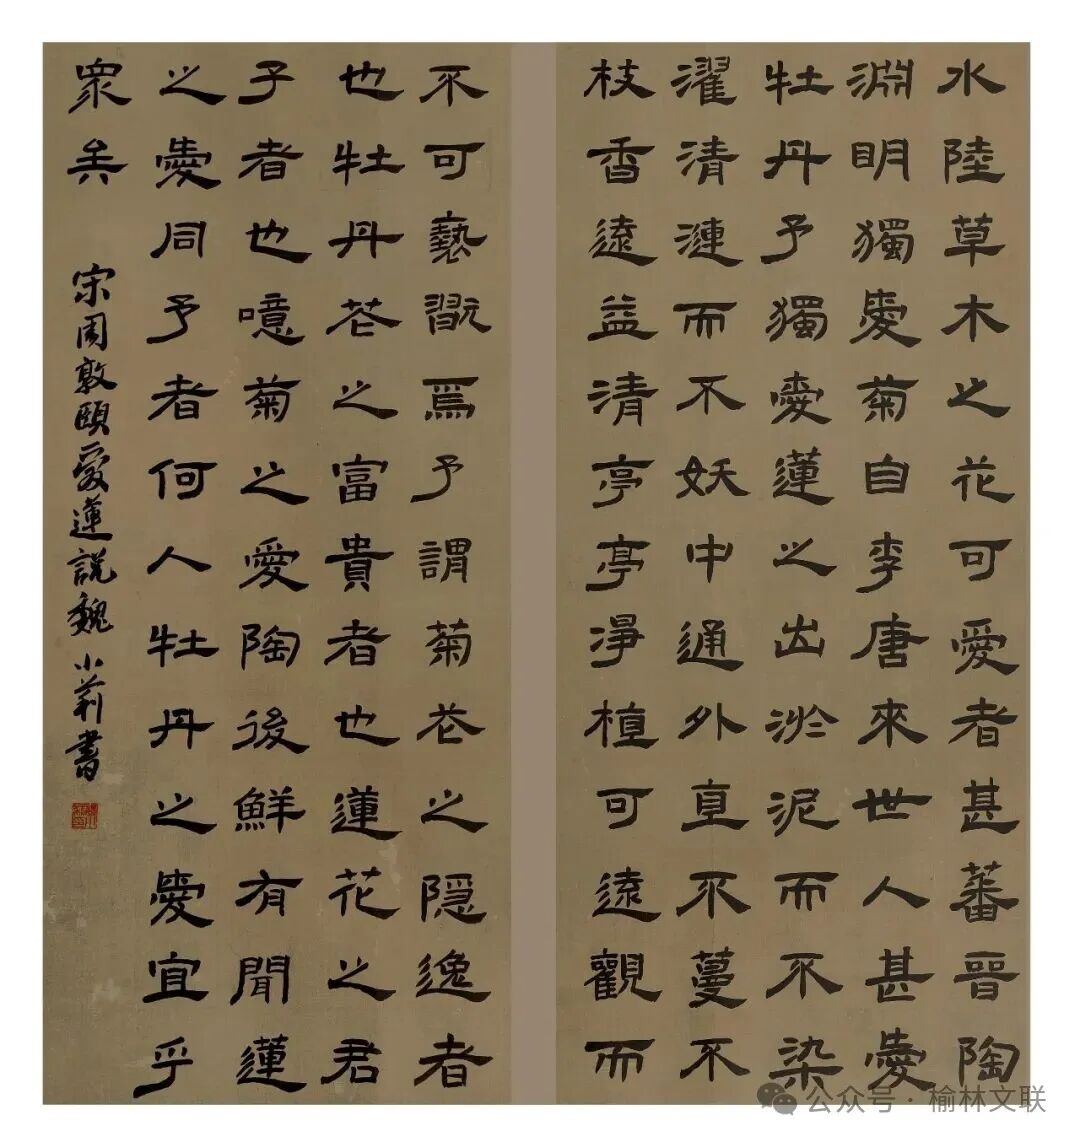 水陸草木之花可愛者甚蕃晉陶
淵明獨愛菊自李唐來世人甚愛
牡丹予獨愛蓮之出淤泥而不染
濯清漣而不妖中通外直不蔓不
枝香遠益清亭亭淨植可遠觀而
不可褻翫焉予謂菊花之隱逸者
也牡丹花之富貴者也蓮花之君
子者也噫菊之愛陶後鮮有聞蓮
之愛同予者何人牡丹之愛宜乎
眾矣 宋周敦頤愛蓮説魏小莉書
公众号·榆林文联